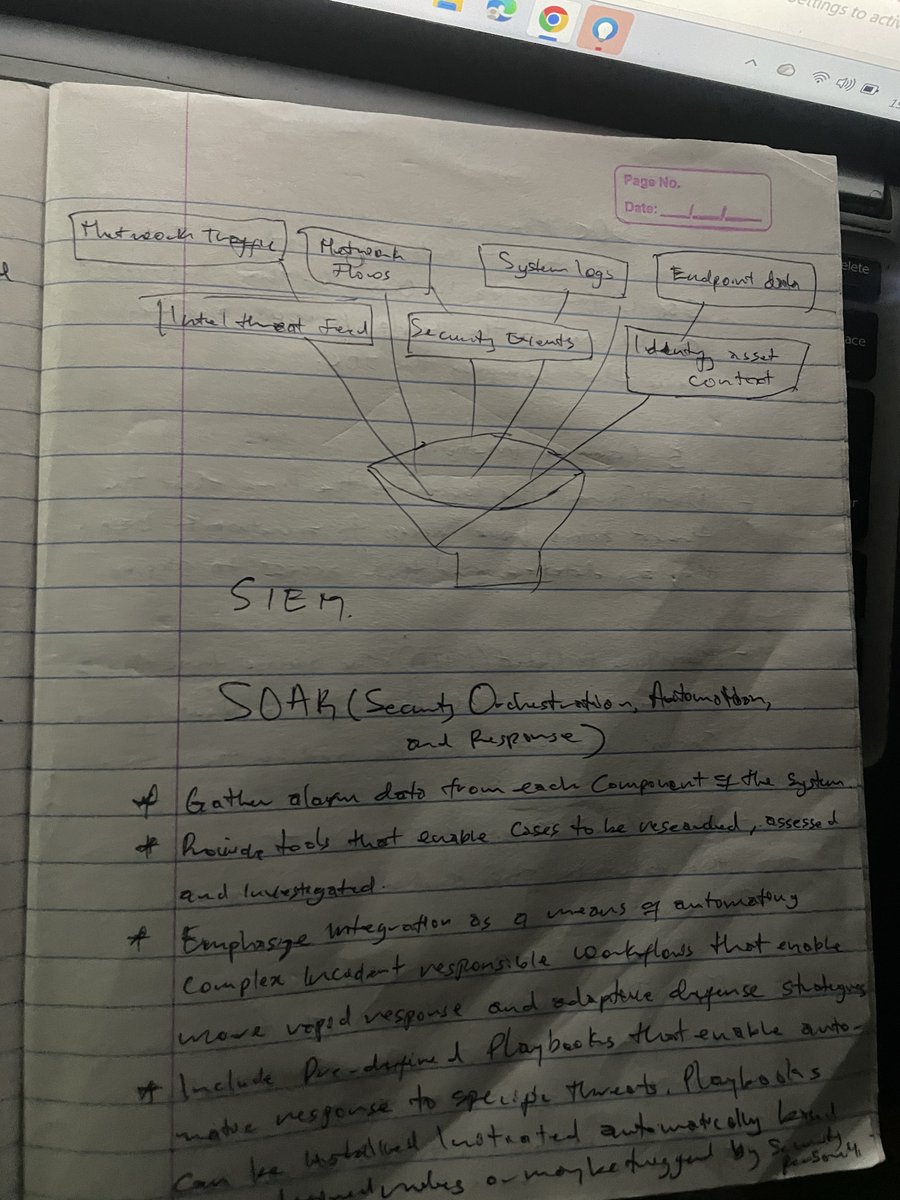 ettings to activ
Page No.
Date:
Network Traffic
Network
Flows
System logs
Endpoint data
Intel threat Feed
Security Events
Identity, asset
context
SIEM.
SOAR (Security Orchestration, Automation,
and Response)
* Gather alarm data from each Component of the System
* Provide tools that enable cases to be researched, assessed
and Investigated.
* Emphasize integration as a means of automating
complex Incident responsible workflows that enable
more rapid response and adaptive defense strategies
* Include Pre-defined Playbooks that enable auto-
matic response to specific threats. Playbooks
can be Instiated automatically based
rules or may be trigged by Security
personn
elete
ace